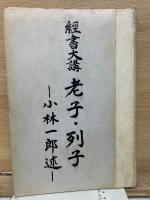 經書大講
老子・列子
—小林一郎述—